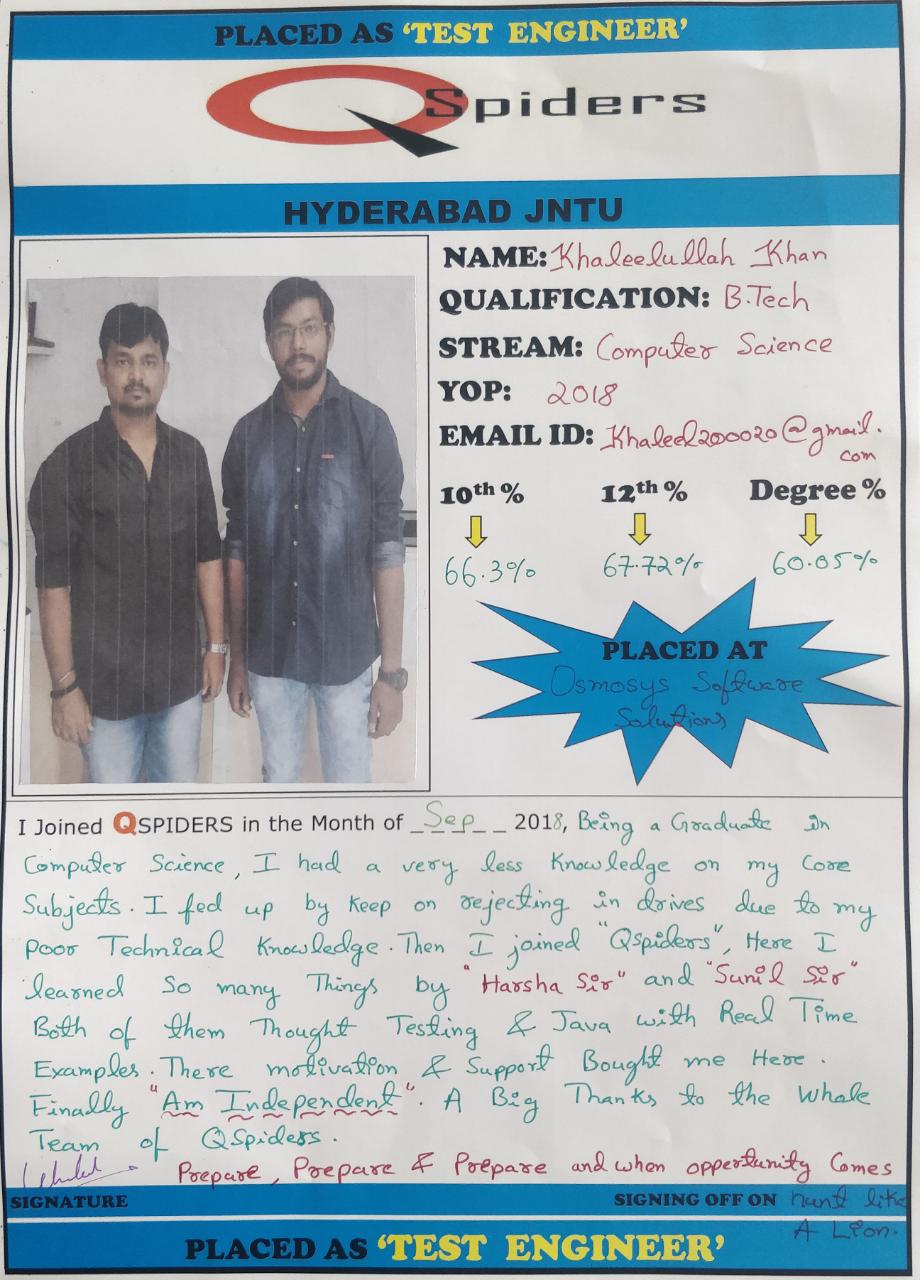 PLACED AS ‘TEST ENGINEER’
QSpiders
HYDERABAD JNTU
NAME: Khaleelullah Khan
QUALIFICATION: B.Tech
STREAM: Computer Science
YOP: 2018
EMAIL ID: Khaleel200020@gmail.
com
10th % 12th % Degree %
66.3% 67.72% 60.05%
PLACED AT
Osmosys Software
Solutions
I Joined QSPIDERS in the Month of _Sep_ _ 2018, Being a Graduate in
Computer Science, I had a very less Knowledge on my Core
Subjects. I fed up by keep on rejecting in drives due to my
poor Technical Knowledge. Then I joined "Qspiders", Here I
learned So many Things by "Harsha Sir" and "Sunil Sir"
Both of them Thought Testing & Java with Real Time
Examples. There motivation & Support Bought me Here.
Finally "Am Independent". A Big Thanks to the Whole
Team of QSpiders.
Prepare, Prepare & Prepare and when opportunity Comes
SIGNATURE SIGNING OFF ON hunt like
A Lion.
PLACED AS ‘TEST ENGINEER’